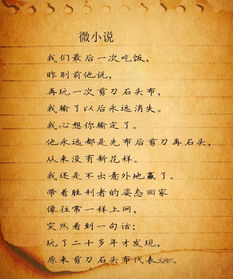 微小说
我们最后一次吃饭，
昨别前他说，
再玩一次剪刀石头布，
我输了以后永远消失。
我心想你输定了。
他永远都是先布后剪刀再石头，
从来没有新花样。
我还是不出意外地赢了。
带着胜利者的姿态回家
像往常一样上网，
突然看到一句话：
玩了二十多年才发现，
原来剪刀石头布代表520。